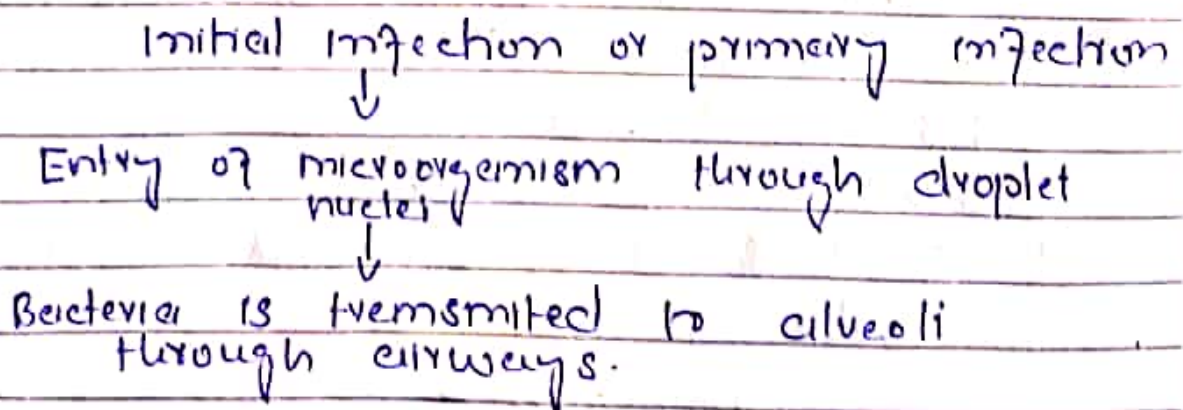 Initial infection or primary infection
↓
Entry of microorganism through droplet
nuclei
↓
Bacteria is transmited to alveoli
through airways.